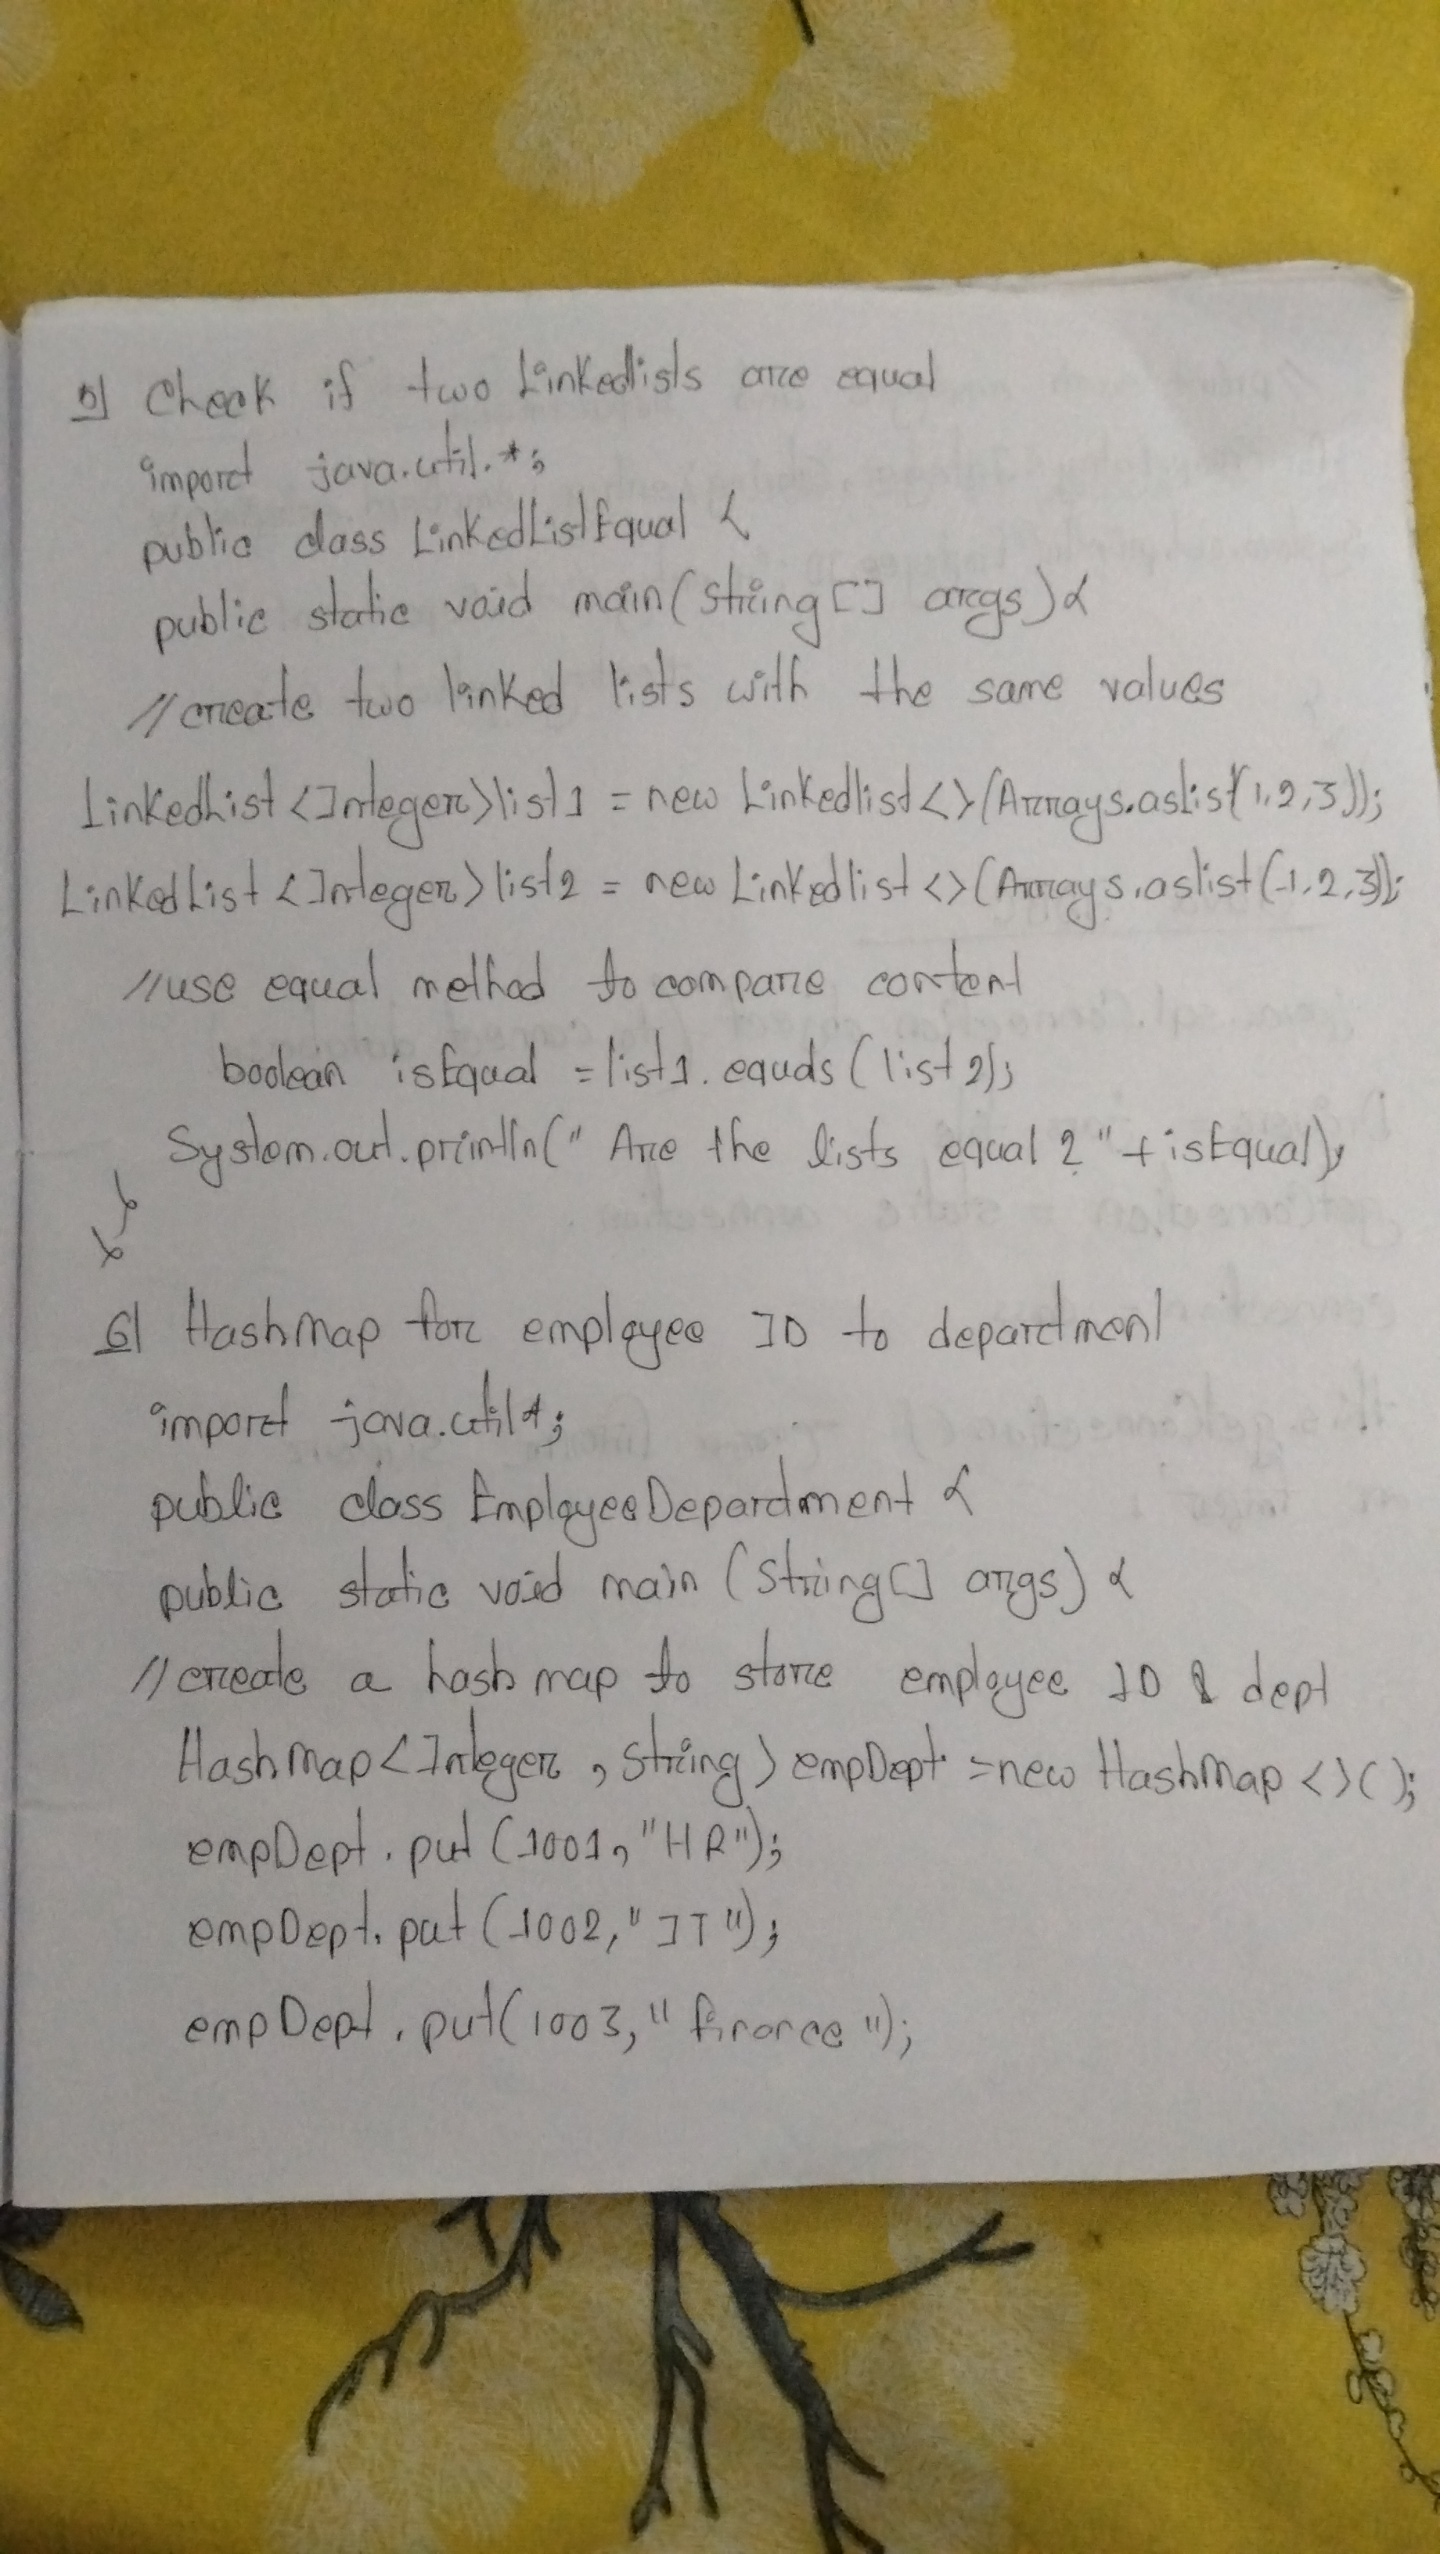 5) Check if two Linkedlists are equal
import java.util.*;
public class LinkedListEqual {
public static void main(String[] args){
//create two linked lists with the same values
LinkedList<Integer>list1 = new Linkedlist<>(Arrays.aslist(1,2,3));
LinkedList<Integer>list2 = new Linkedlist<>(Arrays.aslist(1,2,3));
//use equal method to compare content
boolean isEqual = list1.equals(list2);
System.out.println(" Are the lists equal ? "+isEqual);
}
}
6) HashMap for employee ID to department
import java.util*;
public class EmployeeDepartment {
public static void main (String[] args) {
//create a hash map to store employee ID & dept
HashMap<Integer, String> empDept = new HashMap <>();
empDept.put (1001, "HR");
empDept.put (1002, "IT");
empDept.put(1003, "finance");